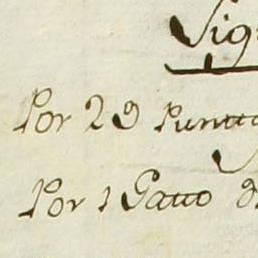 Sig
Por 29 Puntto
Por 1 Gatto d